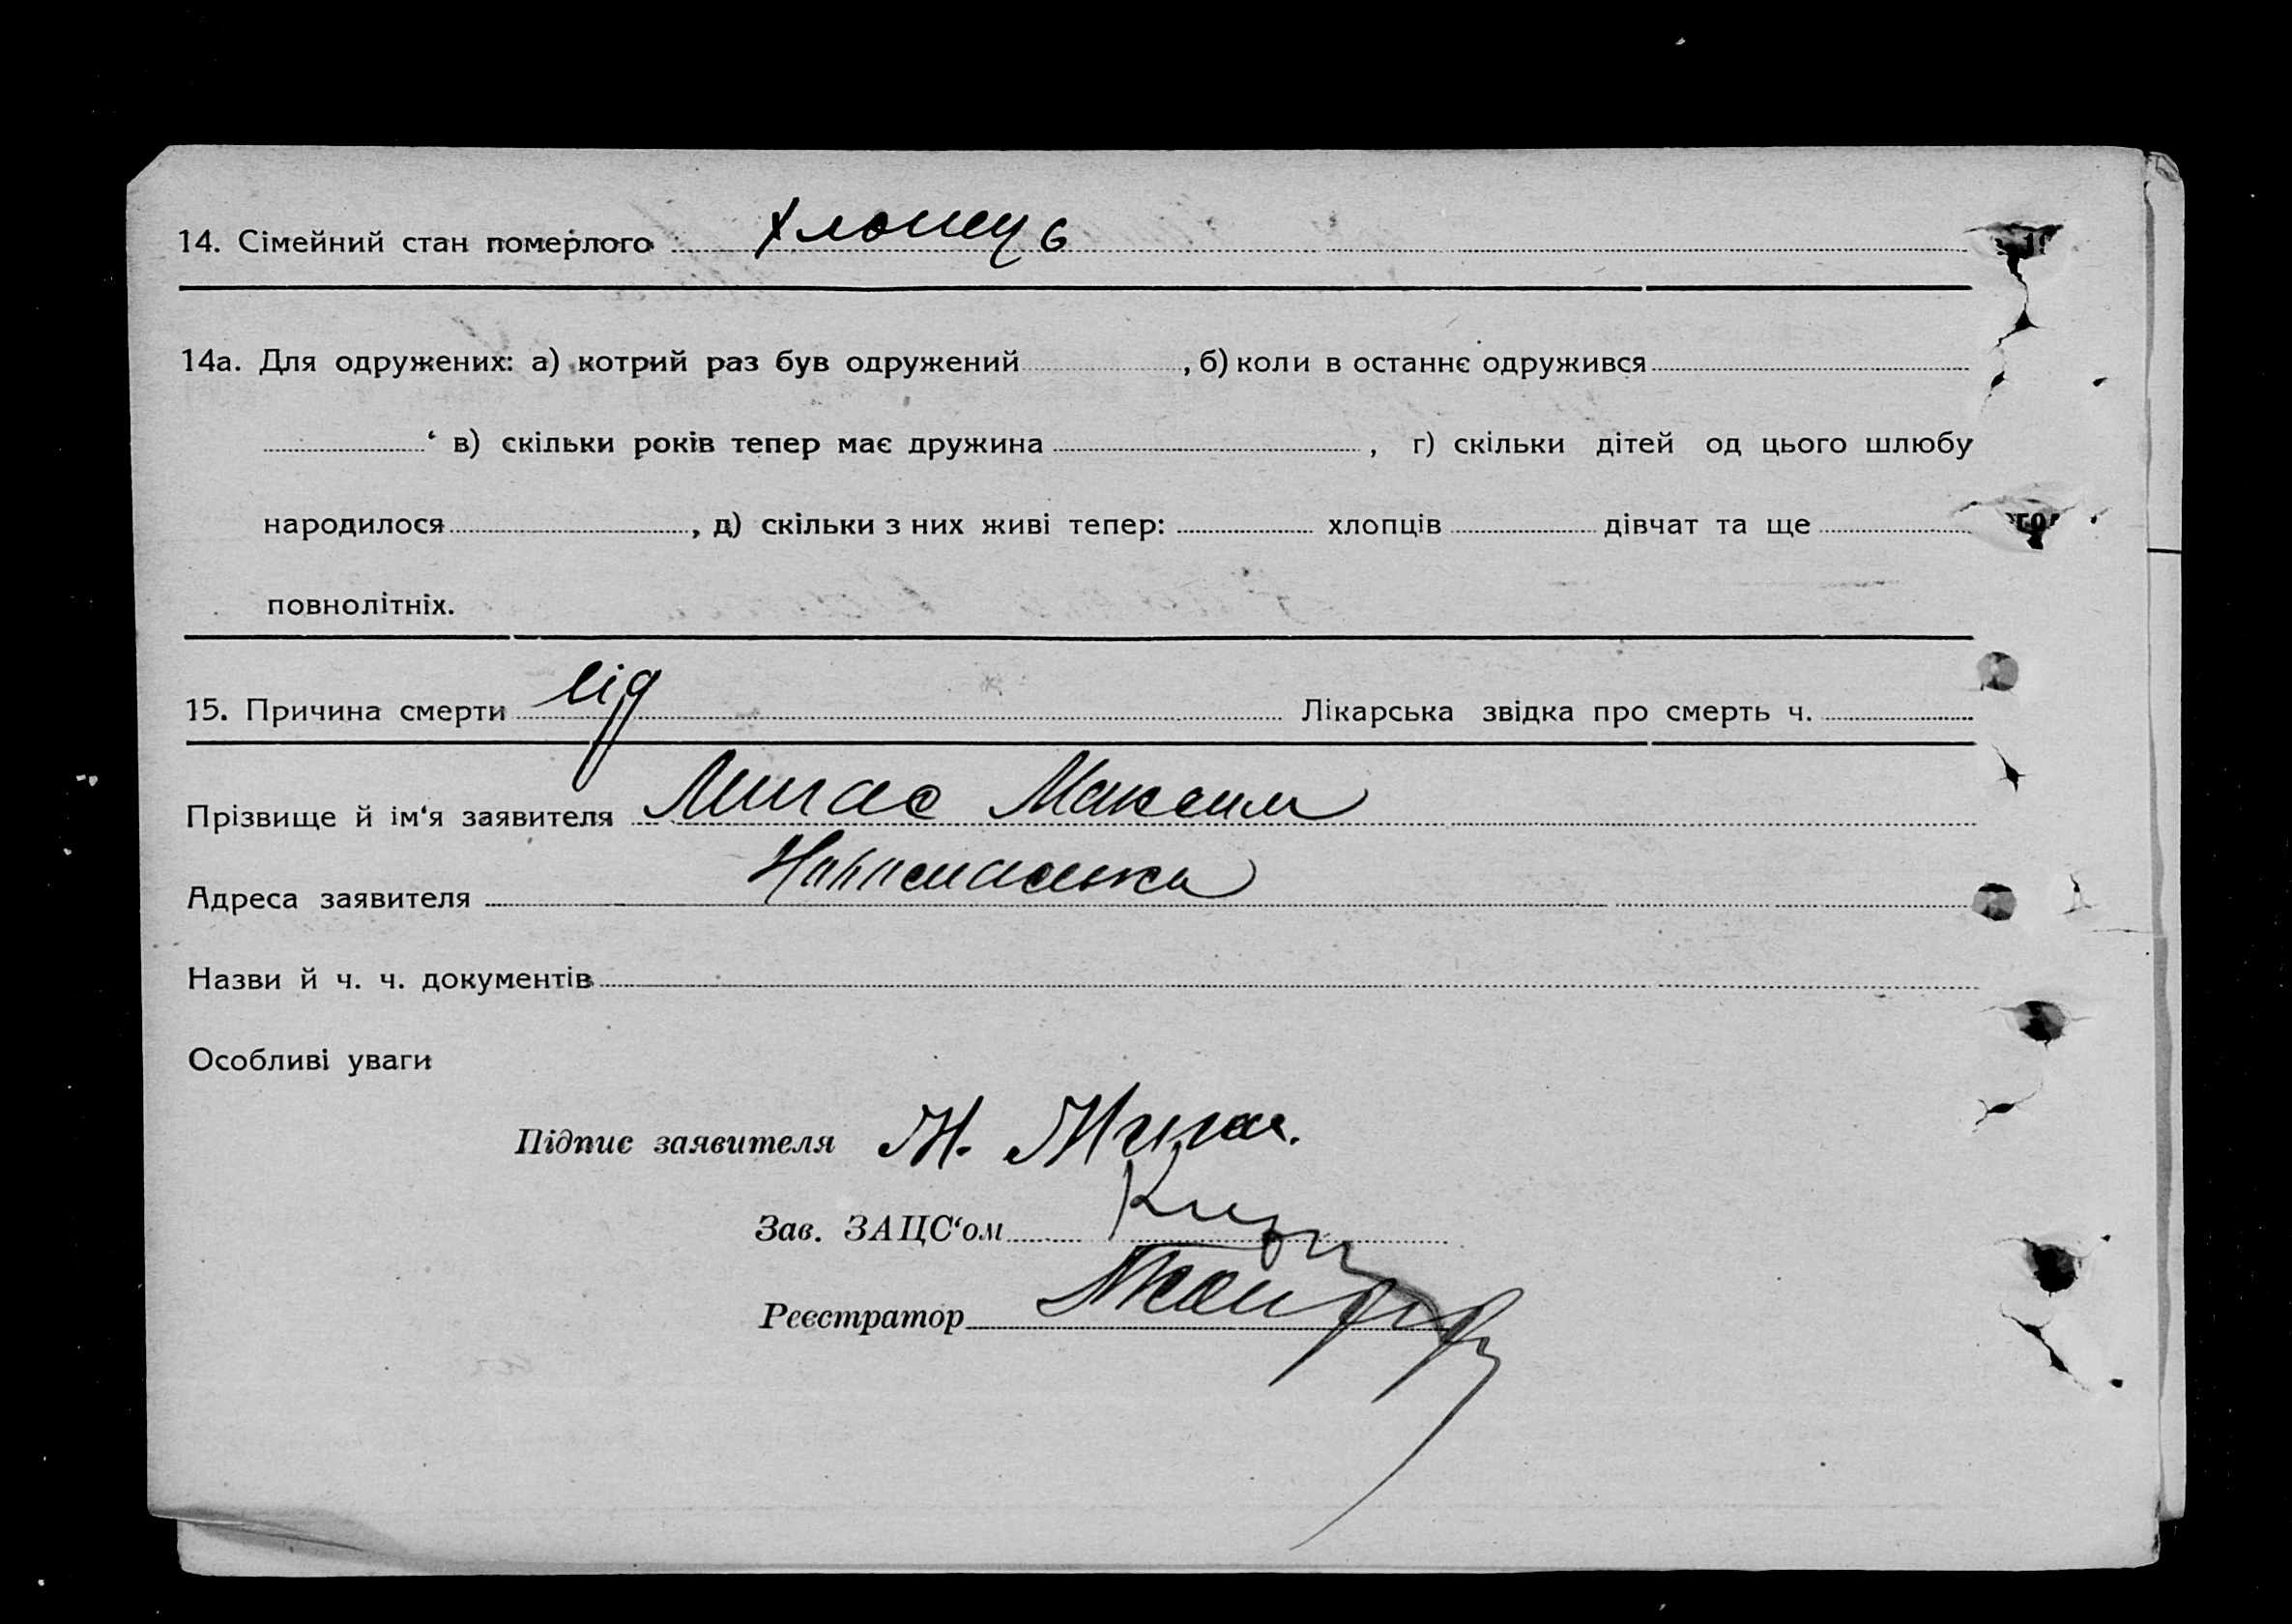 14. Сімейний стан померлого Хлопець
14а. Для одружених: а) котрий раз був одружений , б) коли в останнє одружився
‘ в) скільки років тепер має дружина , г) скільки дітей од цього шлюбу
народилося , д) скільки з них живі тепер: хлопців дівчат та ще
повнолітніх.
15. Причина смерти Лікарська звідка про смерть ч.
Прізвище й ім‘я заявителя Мигас Максим
Адреса заявителя
Назви й ч. ч. документів
Особливі уваги
Підпис заявителя М. Мигас.
Зав. ЗАЦС‘ом
Реєстратор